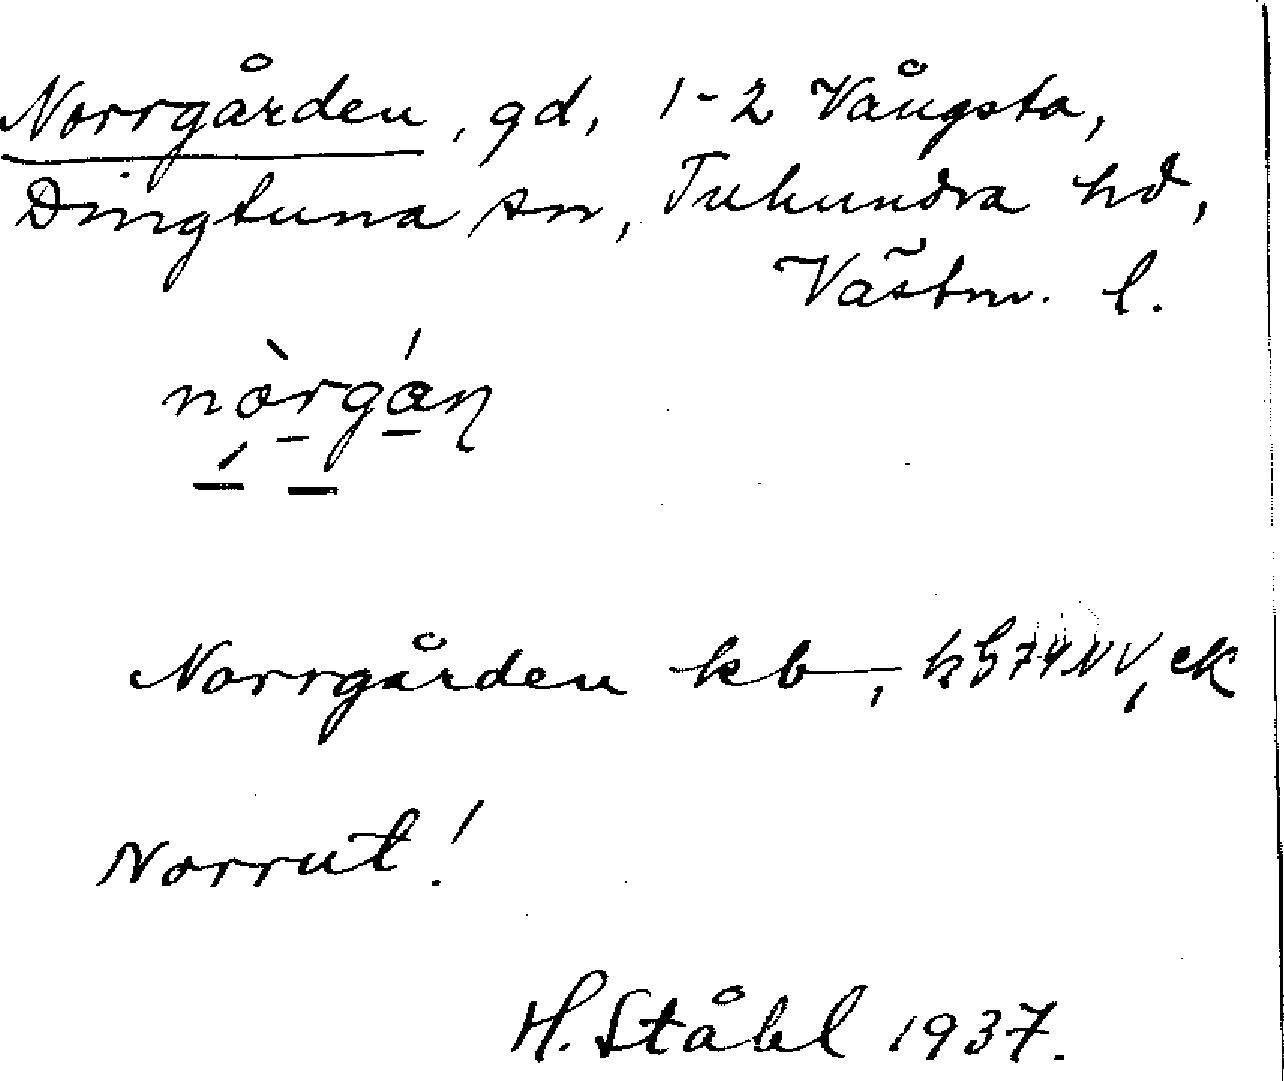 Norrgården, gd, 1-2 Vångsta,
Dingtuna sn, Tuhundra hd,
Västm. l.
nòrgán
Norrgården kb, hb 74 NV, ek
Norrut!
H. Ståhl 1937.